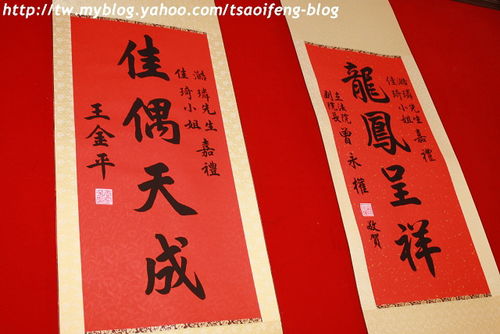 http://tw.myblog.yahoo.com/tsaoifeng-blog
龍鳳呈祥
璘先生
佳琦小姐
嘉禮
立法院
副院長
曾永權
敬賀
璘先生
佳琦小姐
嘉禮
佳偶天成
王金平